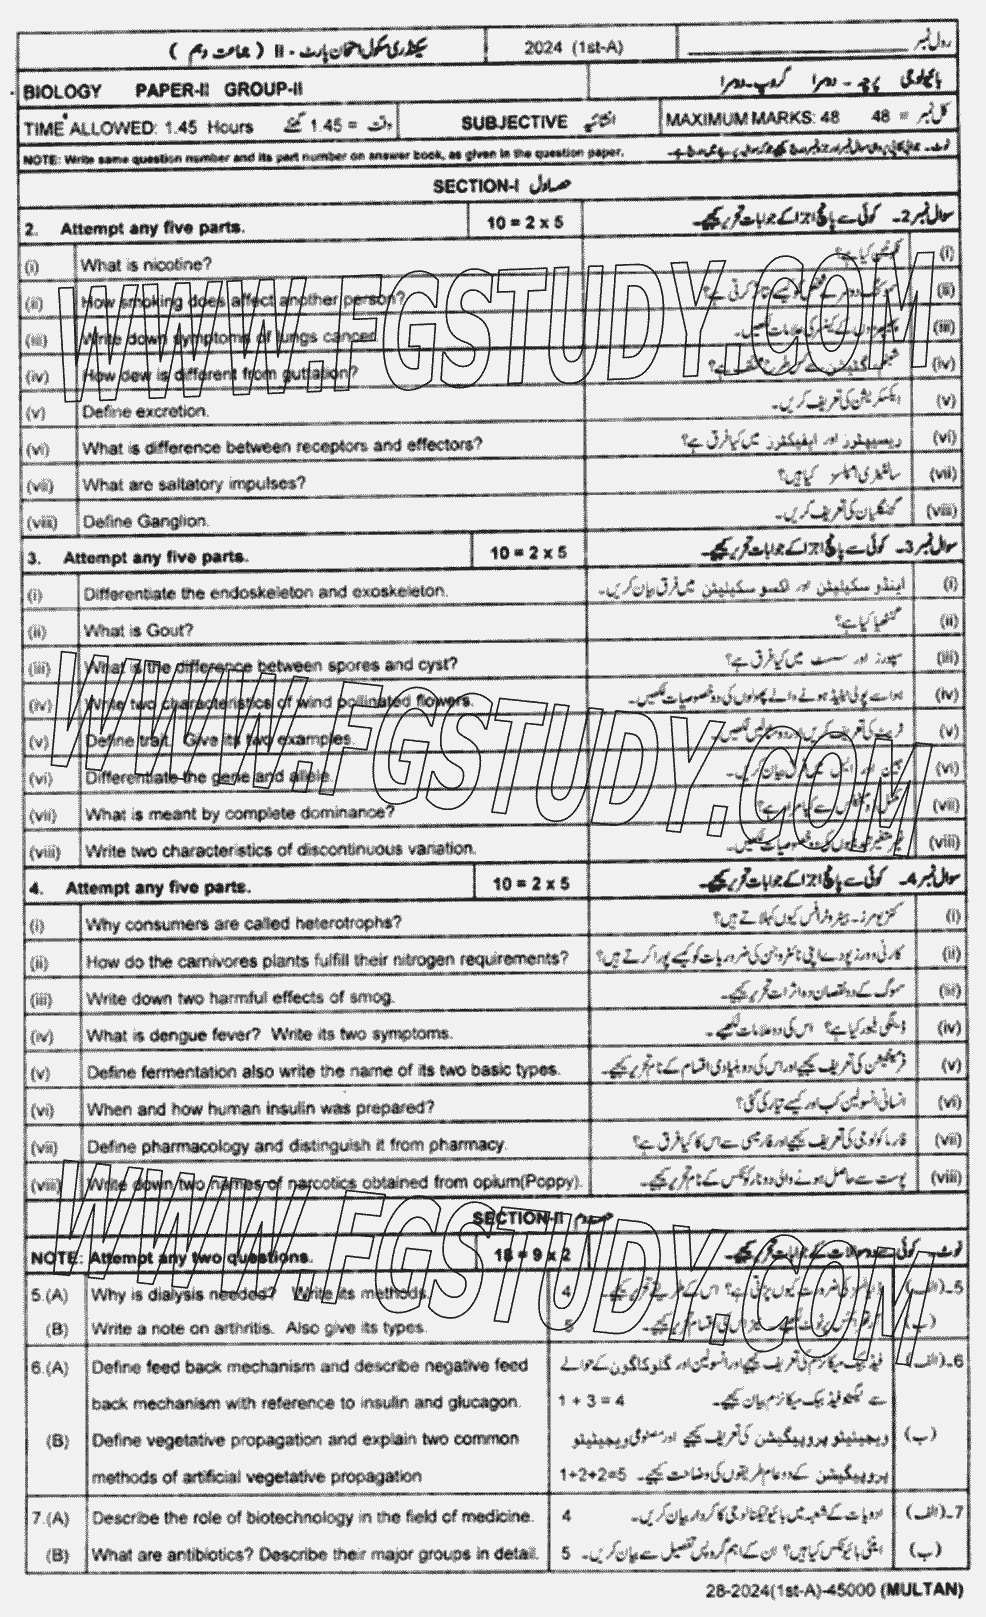 سیکنڈری سکول امتحان پارٹ - II ( جماعت دہم ) 2024 (1st-A) رول نمبر
BIOLOGY PAPER-II GROUP-II بائیولوجی پرچہ - دوسرا گروپ - دوسرا
TIME ALLOWED: 1.45 Hours وقت = 1.45 گھنٹے SUBJECTIVE انشائیہ MAXIMUM MARKS: 48 کل نمبر = 48
NOTE: Write same question number and its part number on answer book, as given in the question paper.
SECTION-I حصہ اول
2. Attempt any five parts. 10 = 2 x 5 سوال نمبر 2۔ کوئی سے پانچ اجزا کے جوابات تحریر کیجیے۔
(i) What is nicotine? نکوٹین کیا ہے؟ (i)
(ii) How smoking does affect another person? (ii)
(iii) Write down symptoms of lungs cancer. پھیپھڑوں کے کینسر کی علامات لکھیں۔ (iii)
(iv) How dew is different from guttation? (iv)
(v) Define excretion. ایکسکریشن کی تعریف کریں۔ (v)
(vi) What is difference between receptors and effectors? ریسیپٹرز اور ایفیکٹرز میں کیا فرق ہے؟ (vi)
(vii) What are saltatory impulses? سالٹیٹری امپلسز کیا ہیں؟ (vii)
(viii) Define Ganglion. گینگلیان کی تعریف کریں۔ (viii)
3. Attempt any five parts. 10 = 2 x 5 سوال نمبر 3۔ کوئی سے پانچ اجزا کے جوابات تحریر کیجیے۔
(i) Differentiate the endoskeleton and exoskeleton. اینڈو سکیلیٹن اور ایکسو سکیلیٹن میں فرق بیان کریں۔ (i)
(ii) What is Gout? گنٹھیا کیا ہے؟ (ii)
(iii) What is the difference between spores and cyst? سپورز اور سسٹ میں کیا فرق ہے؟ (iii)
(iv) Write two characteristics of wind pollinated flowers. ہوا سے پولی نیٹڈ ہونے والے پھولوں کی دو خصوصیات لکھیں۔ (iv)
(v) Define trait. Give its two examples. (v)
(vi) Differentiate the gene and allele. جین اور ایلیل میں فرق بیان کریں۔ (vi)
(vii) What is meant by complete dominance? (vii)
(viii) Write two characteristics of discontinuous variation. (viii)
4. Attempt any five parts. 10 = 2 x 5 سوال نمبر 4۔ کوئی سے پانچ اجزا کے جوابات تحریر کیجیے۔
(i) Why consumers are called heterotrophs? کنزیومرز۔ ہیٹروٹرافس کیوں کہلاتے ہیں؟ (i)
(ii) How do the carnivores plants fulfill their nitrogen requirements? کارنی وورز پودے اپنی نائٹروجن کی ضروریات کو کیسے پورا کرتے ہیں؟ (ii)
(iii) Write down two harmful effects of smog. سموگ کے دو نقصان دہ اثرات تحریر کیجیے۔ (iii)
(iv) What is dengue fever? Write its two symptoms. ڈینگی فیور کیا ہے؟ اس کی دو علامات لکھیے۔ (iv)
(v) Define fermentation also write the name of its two basic types. فرمنٹیشن کی تعریف کیجیے اور اس کی دو بنیادی اقسام کے نام تحریر کیجیے۔ (v)
(vi) When and how human insulin was prepared? انسانی انسولین کب اور کیسے تیار کی گئی؟ (vi)
(vii) Define pharmacology and distinguish it from pharmacy. فارماکولوجی کی تعریف کیجیے اور فارمیسی سے اس کا کیا فرق ہے؟ (vii)
(viii) Write down two names of narcotics obtained from opium(Poppy). پوست سے حاصل ہونے والی دو نارکوٹکس کے نام تحریر کیجیے۔ (viii)
SECTION-II حصہ دوم
NOTE: Attempt any two questions. 18 = 9 x 2 نوٹ۔ کوئی سے دو سوالات کے جوابات تحریر کیجیے۔
5.(A) Why is dialysis needed? Write its methods. 4 5۔(الف)
(B) Write a note on arthritis. Also give its types. 5 (ب)
6.(A) Define feed back mechanism and describe negative feed فیڈ بیک میکانزم کی تعریف کیجیے اور انسولین اور گلوکاگون کے حوالے 6۔(الف)
back mechanism with reference to insulin and glucagon. 1 + 3 = 4 سے نیگیٹو فیڈ بیک میکانزم بیان کیجیے۔
(B) Define vegetative propagation and explain two common ویجیٹیٹو پروپیگیشن کی تعریف کیجیے اور مصنوعی ویجیٹیٹو (ب)
methods of artificial vegetative propagation 1+2+2=5 پروپیگیشن کے دو عام طریقوں کی وضاحت کیجیے۔
7.(A) Describe the role of biotechnology in the field of medicine. 4 ادویات کے شعبہ میں بائیوٹیکنالوجی کا کردار بیان کریں۔ 7۔(الف)
(B) What are antibiotics? Describe their major groups in detail. 5 اینٹی بائیوٹکس کیا ہیں؟ ان کے اہم گروپس تفصیل سے بیان کریں۔ (ب)
28-2024(1st-A)-45000 (MULTAN)
WWW.FGSTUDY.COM
WWW.FGSTUDY.COM
WWW.FGSTUDY.COM